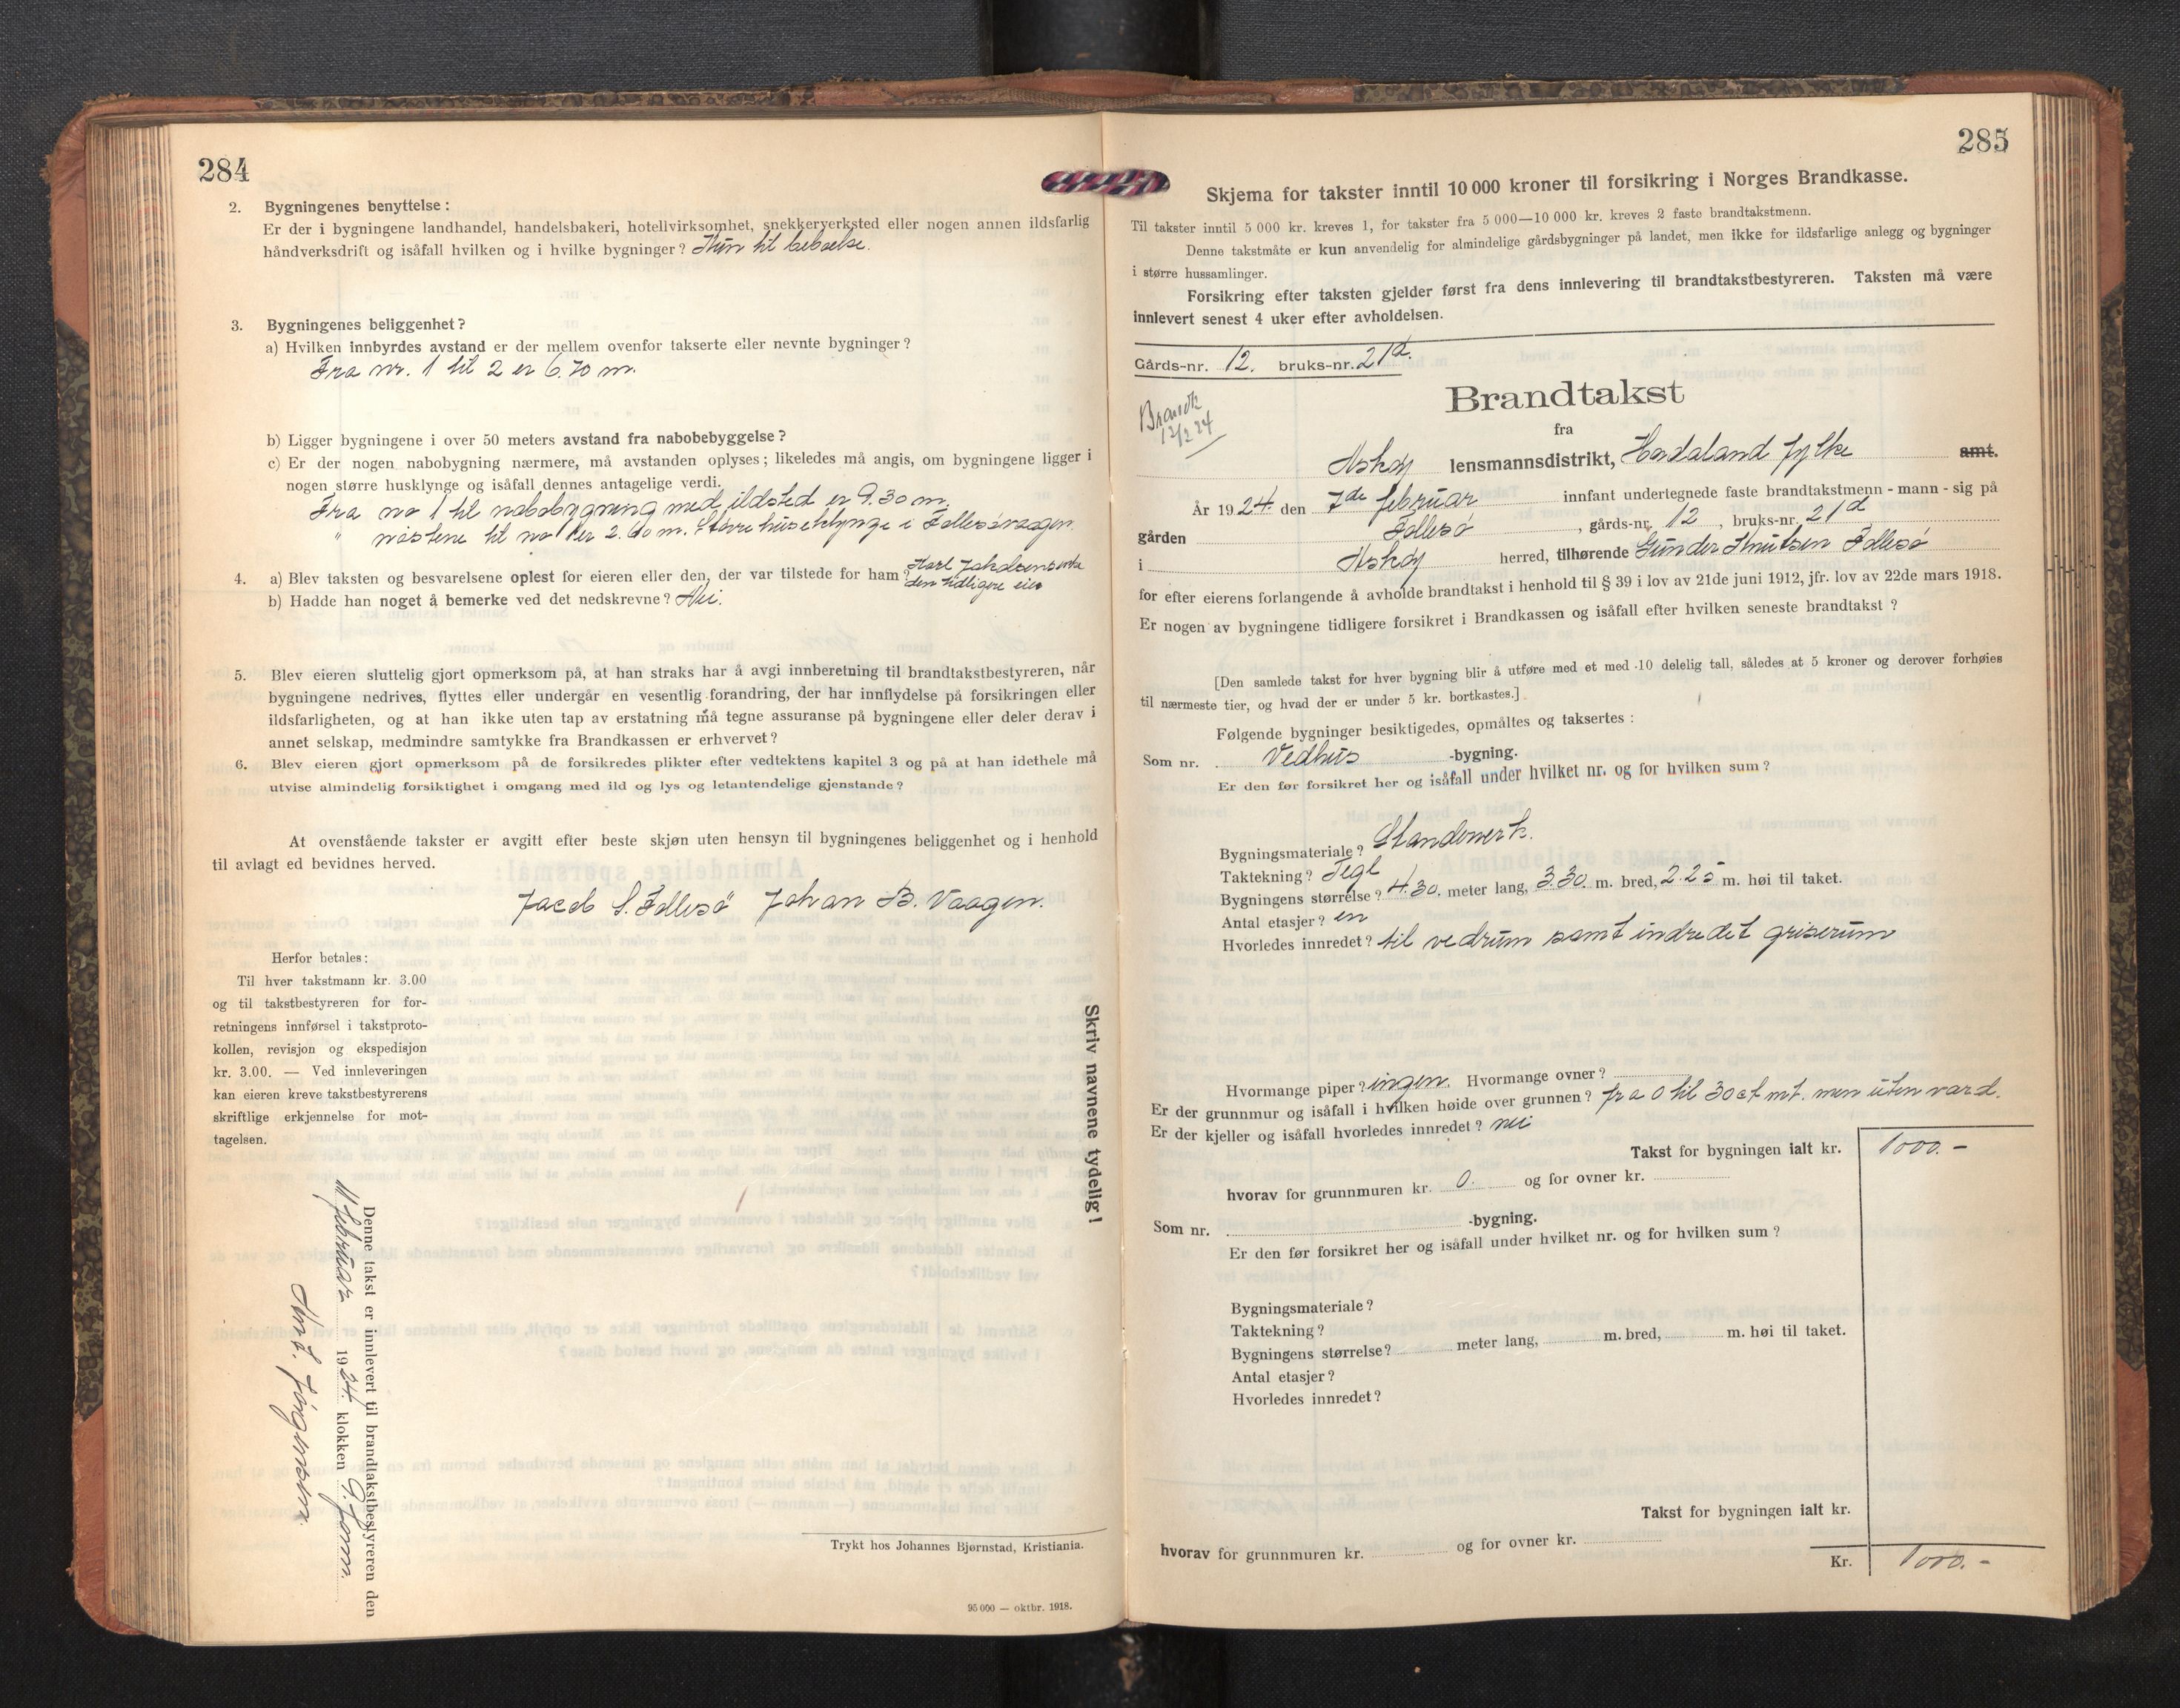 284
2. Bygningenes benyttelse :
Er der i bygningene landhandel, handelsbakeri, hotellvirksomhet, snekkerverksted eller nogen annen ildsfarlig
håndverksdrift og isåfall hvilken og i hvilke bygninger? Kun til beboelse.
3. Bygningenes beliggenhet?
a) Hvilken innbyrdes avstand er der mellem ovenfor takserte eller nevnte bygninger?
Fra nr. 1 til 2 er 6.70 m.
b) Ligger bygningene i over 50 meters avstand fra nabobebyggelse?
c) Er der nogen nabobygning nærmere, må avstanden oplyses; likeledes må angis, om bygningene ligger i
nogen større husklynge og isåfall dennes antagelige verdi.
Fra no 1 til nabobygning med ildsted er 9.30 m,
" nøstene til no 1 er 2.60 m. Større huseklynge i Follesøvaagen.
4. a) Blev taksten og besvarelsene oplest for eieren eller den, der var tilstede for ham? Karl Jakobsens
den tidligere eier
b) Hadde han noget å bemerke ved det nedskrevne? Nei.
5. Blev eieren sluttelig gjort opmerksom på, at han straks har å avgi innberetning til brandtakstbestyreren, når
bygningene nedrives, flyttes eller undergår en vesentlig forandring, der har innflydelse på forsikringen eller
ildsfarligheten, og at han ikke uten tap av erstatning må tegne assuranse på bygningene eller deler derav i
annet selskap, medmindre samtykke fra Brandkassen er erhvervet?
6. Blev eieren gjort opmerksom på de forsikredes plikter efter vedtektens kapitel 3 og på at han idethele må
utvise almindelig forsiktighet i omgang med ild og lys og letantendelige gjenstande?
At ovenstående takster er avgitt efter beste skjøn uten hensyn til bygningenes beliggenhet og i henhold
til avlagt ed bevidnes herved.
Jacob S. Follesø Johan B. Vaagen.
Herfor betales:
Til hver takstmann kr. 3.00
og til takstbestyreren for for-
retningens innførsel i takstproto-
kollen, revisjon og ekspedisjon
kr. 3.00. — Ved innleveringen
kan eieren kreve takstbestyrerens
skriftlige erkjennelse for mot-
tagelsen.
Skriv navnene tydelig!
Denne takst er innlevert til brandtakstbestyreren den
11 februar 1924. klokken 9 form.
Trykt hos Johannes Bjørnstad, Kristiania.
95 000 — oktbr. 1918.
285
Skjema for takster inntil 10 000 kroner til forsikring i Norges Brandkasse.
Til takster inntil 5 000 kr. kreves 1, for takster fra 5 000—10 000 kr. kreves 2 faste brandtakstmenn.
Denne takstmåte er kun anvendelig for almindelige gårdsbygninger på landet, men ikke for ildsfarlige anlegg og bygninger
i større hussamlinger.
Forsikring efter taksten gjelder først fra dens innlevering til brandtakstbestyreren. Taksten må være
innlevert senest 4 uker efter avholdelsen.
Gårds-nr. 12. bruks-nr. 21d.
Brandtakst
12/2 24
fra
Askøy lensmannsdistrikt, Hordaland fylke amt.
År 1924. den 7de februar innfant undertegnede faste brandtakstmenn - mann - sig på
gården Follesø, gårds-nr. 12, bruks-nr. 21d
i Askøy herred, tilhørende Gunder Knutsen Follesø
for efter eierens forlangende å avholde brandtakst i henhold til § 39 i lov av 21de juni 1912, jfr. lov av 22de mars 1918.
Er nogen av bygningene tidligere forsikret i Brandkassen og isåfall efter hvilken seneste brandtakst ?
[Den samlede takst for hver bygning blir å utføre med et med 10 delelig tall, således at 5 kroner og derover forhøies
til nærmeste tier, og hvad der er under 5 kr. bortkastes.]
Følgende bygninger besiktigedes, opmåltes og taksertes :
Som nr. Vedhus -bygning.
Er den før forsikret her og isåfall under hvilket nr. og for hvilken sum?
Bygningsmateriale? Standeverk.
Taktekning? Tegl
Bygningens størrelse? 4.30. meter lang, 3.30. m. bred, 2.25 m. høi til taket.
Antal etasjer? en
Hvorledes innredet? til vedrum samt indredet griserum
Hvormange piper? ingen. Hvormange ovner?
Er der grunnmur og isåfall i hvilken høide over grunnen? fra 0 til 30 ct mt. men uten værd.
Er der kjeller og isåfall hvorledes innredet? nei
Takst for bygningen ialt kr. 1000.-
hvorav for grunnmuren kr. 0. og for ovner kr.
Som nr. -bygning.
Er den før forsikret her og isåfall under hvilket nr. og for hvilken sum?
Bygningsmateriale?
Taktekning?
Bygningens størrelse? meter lang, m. bred, m. høi til taket.
Antal etasjer?
Hvorledes innredet?
Takst for bygningen ialt kr.
hvorav for grunnmuren kr. og for ovner kr.
Kr. 1000.-